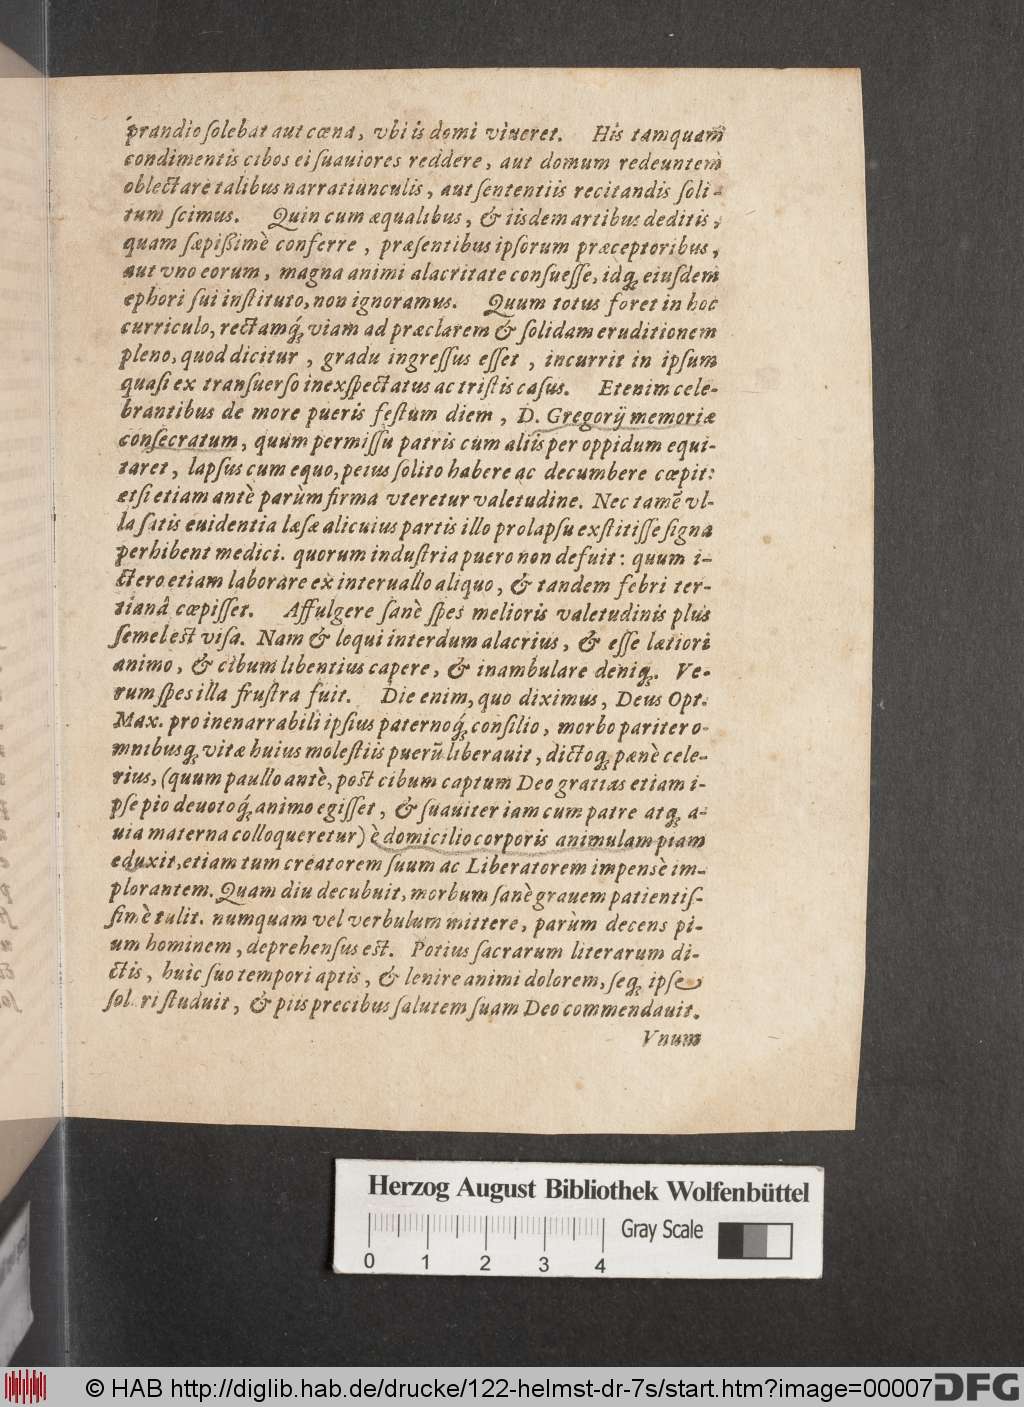 prandio ſolebat aut cœna, vbi is domi viueret. His tamquam
condimentis cibos ei ſuauiores reddere, aut domum redeuntem
oblectare talibus narratiunculis, aut ſententiis recitandis ſoli-
tum ſcimus. Quin cum æqualibus, & iisdem artibus deditis,
quam ſæpißimè conferre, præſentibus ipſorum præceptoribus,
aut vno eorum, magna animi alacritate conſueſſe, idq́; eiuſdem
ephori ſui inſtituto, non ignoramus. Quum totus foret in hoc
curriculo, rectamq́; viam ad præclarem & ſolidam eruditionem
pleno, quod dicitur, gradu ingreſſus eſſet, incurrit in ipſum
quaſi ex transuerſo inexſpectatus ac triſtis caſus. Etenim cele-
brantibus de more pueris feſtum diem, D. Gregorij memoriæ
conſecratum, quum permiſſu patris cum aliis per oppidum equi-
taret, lapſus cum equo, peius ſolito habere ac decumbere cœpit:
etſi etiam antè parùm firma vteretur valetudine. Nec tamē vl-
la ſatis euidentia læſæ alicuius partis illo prolapſu exſtitiſſe ſigna
perhibent medici. quorum induſtria puero non defuit: quum i-
ctero etiam laborare ex interuallo aliquo, & tandem febri ter-
tianâ cœpiſſet. Affulgere ſanè ſpes melioris valetudinis plus
ſemel eſt viſa. Nam & loqui interdum alacrius, & eſſe lætiori
animo, & cibum libentius capere, & inambulare deniq;. Ve-
rum ſpes illa fruſtra fuit. Die enim, quo diximus, Deus Opt.
Max. pro inenarrabili ipſius paternoq́; conſilio, morbo pariter o-
mnibusq; vitæ huius moleſtiis puerū liberauit, dictoq; pænè cele-
rius, (quum paullo antè, poſt cibum captum Deo gratias etiam i-
pſe pio deuotoq́; animo egiſſet, & ſuauiter iam cum patre atq; a-
uia materna colloqueretur) è domicilio corporis animulam piam
eduxit, etiam tum creatorem ſuum ac Liberatorem impensè im-
plorantem. Quam diu decubuit, morbum ſanè grauem patientiſ-
ſimè tulit. numquam vel verbulum mittere, parùm decens pi-
um hominem, deprehenſus eſt. Potius ſacrarum literarum di-
ctis, huic ſuo tempori aptis, & lenire animi dolorem, ſeq; ipſe
ſolari ſtuduit, & piis precibus ſalutem ſuam Deo commendauit.
Vnum
Herzog August Bibliothek Wolfenbüttel
Gray Scale
0 1 2 3 4
© HAB http://diglib.hab.de/drucke/122-helmst-dr-7s/start.htm?image=00007
DFG